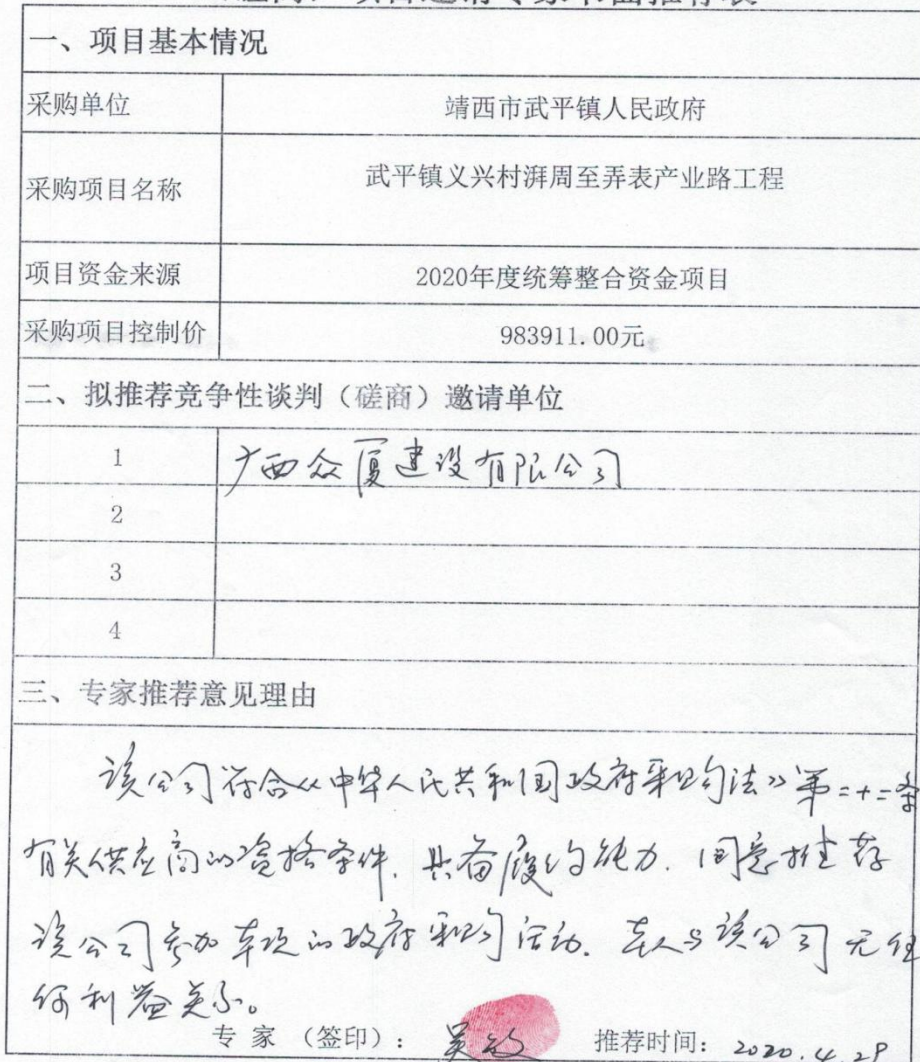 项目邀请专家书面推荐表
一、项目基本情况
采购单位 靖西市武平镇人民政府
采购项目名称 武平镇义兴村湃周至弄表产业路工程
项目资金来源 2020年度统筹整合资金项目
采购项目控制价 983911.00元
二、拟推荐竞争性谈判（磋商）邀请单位
1 广西众厦建设有限公司
2
3
4
三、专家推荐意见理由
该公司符合《中华人民共和国政府采购法》第二十二条
有关供应商的资格条件，具备履约能力．同意推荐
该公司参加本项的政府采购活动．本人与该公司无任
何利益关系。
专家（签印）： 吴 推荐时间：2020.4.28